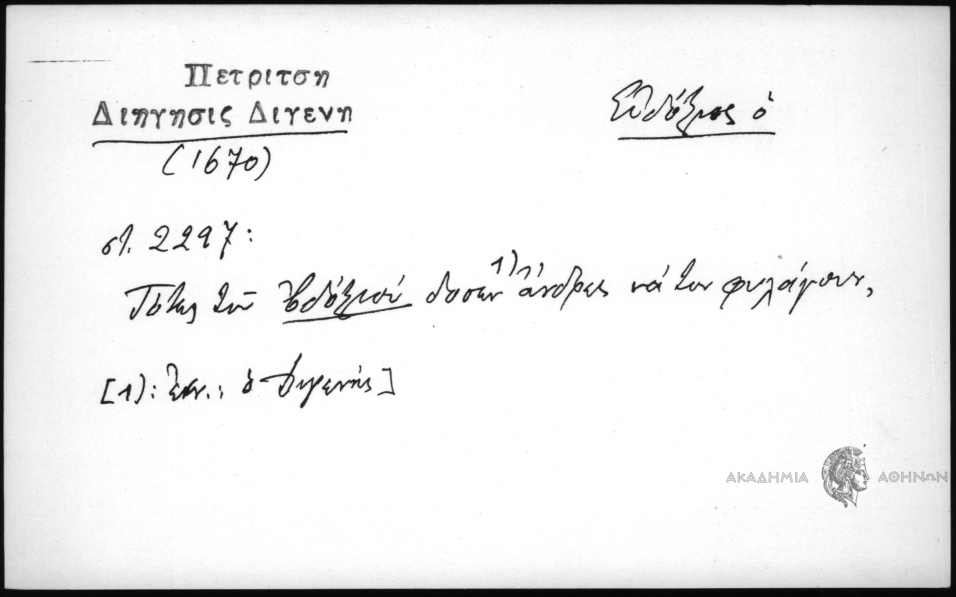 Πετριτση
Διηγησις Διγενη
(1670)
Εὐδόξιος ὁ
στ. 2297:
Τότες τοῦ Εὐδόξιου δοσεν 1) ἄνδρες νὰ τον φυλάγουν,
[1): ἐνν.: ὁ Διγενής]
ΑΚΑΔΗΜΙΑ ΑΘΗΝΩΝ